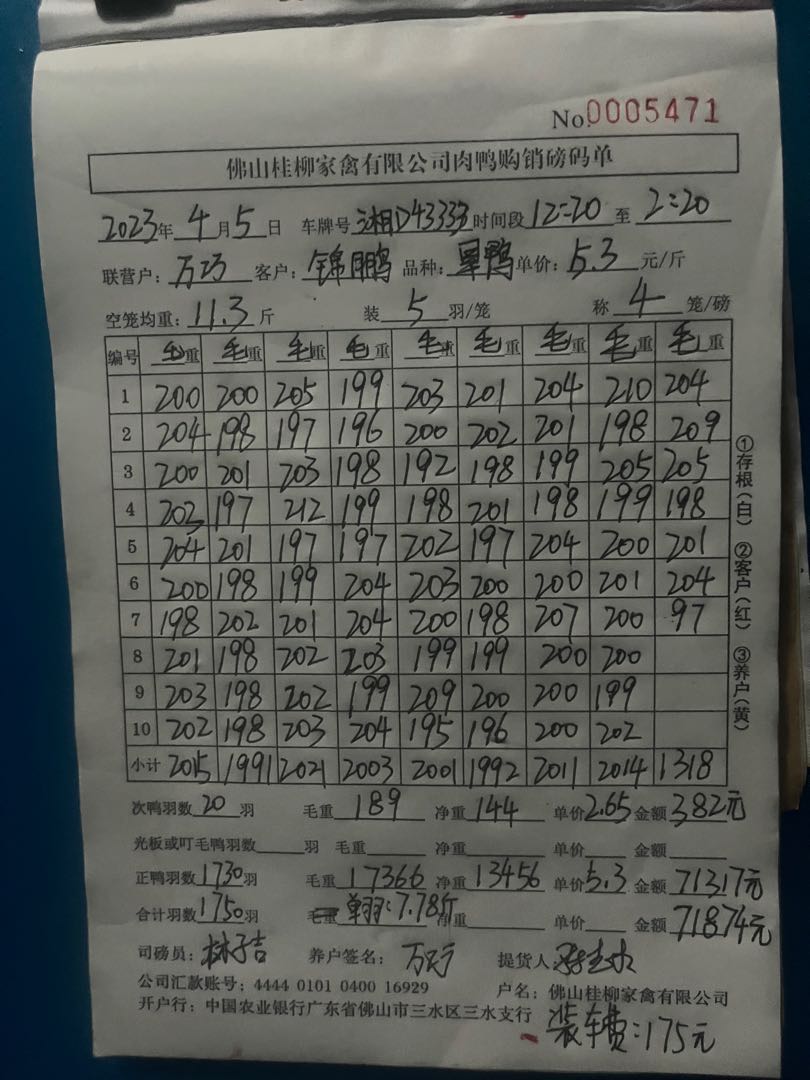 No.0005471
佛山桂柳家禽有限公司肉鸭购销磅码单
2023年 4月 5日 车牌号 湘D43333 时间段 12:20 至 2:20
联营户: 万巧 客户: 锦鹏 品种: 单价: 5.3 元/斤
空笼均重: 11.3 斤 装 5 羽/笼 称 4 笼/磅
编号 毛重 毛重 毛重 毛重 毛重 毛重 毛重 毛重 毛重
1 200 200 205 199 203 201 204 210 204
2 204 198 197 196 200 202 201 198 209
3 200 201 203 198 192 198 199 205 205
4 203 197 212 199 198 201 198 199 198
5 204 201 197 197 202 197 204 200 201
6 200 198 199 204 203 200 200 201 204
7 198 202 201 204 200 198 207 200 97
8 201 198 202 203 199 199 200 200
9 203 198 202 199 209 200 200 199
10 202 198 203 204 195 196 200 202
小计 2015 1991 2021 2003 2001 1992 2011 2014 1318
①存根(白) ②客户(红) ③养户(黄)
次鸭羽数 20 羽 毛重 189 净重 144 单价 2.65 金额 382元
光板或叮毛鸭羽数 羽 毛重 净重 单价 金额
正鸭羽数 1730 羽 毛重 17366 净重 13456 单价 5.3 金额 71317元
合计羽数 1750 羽 毛重 单羽:7.78斤 净重 单价 金额 71874元
司磅员: 林子吉 养户签名: 提货人:
公司汇款账号: 4444 0101 0400 16929 户名: 佛山桂柳家禽有限公司
开户行: 中国农业银行广东省佛山市三水区三水支行 装车费:175元